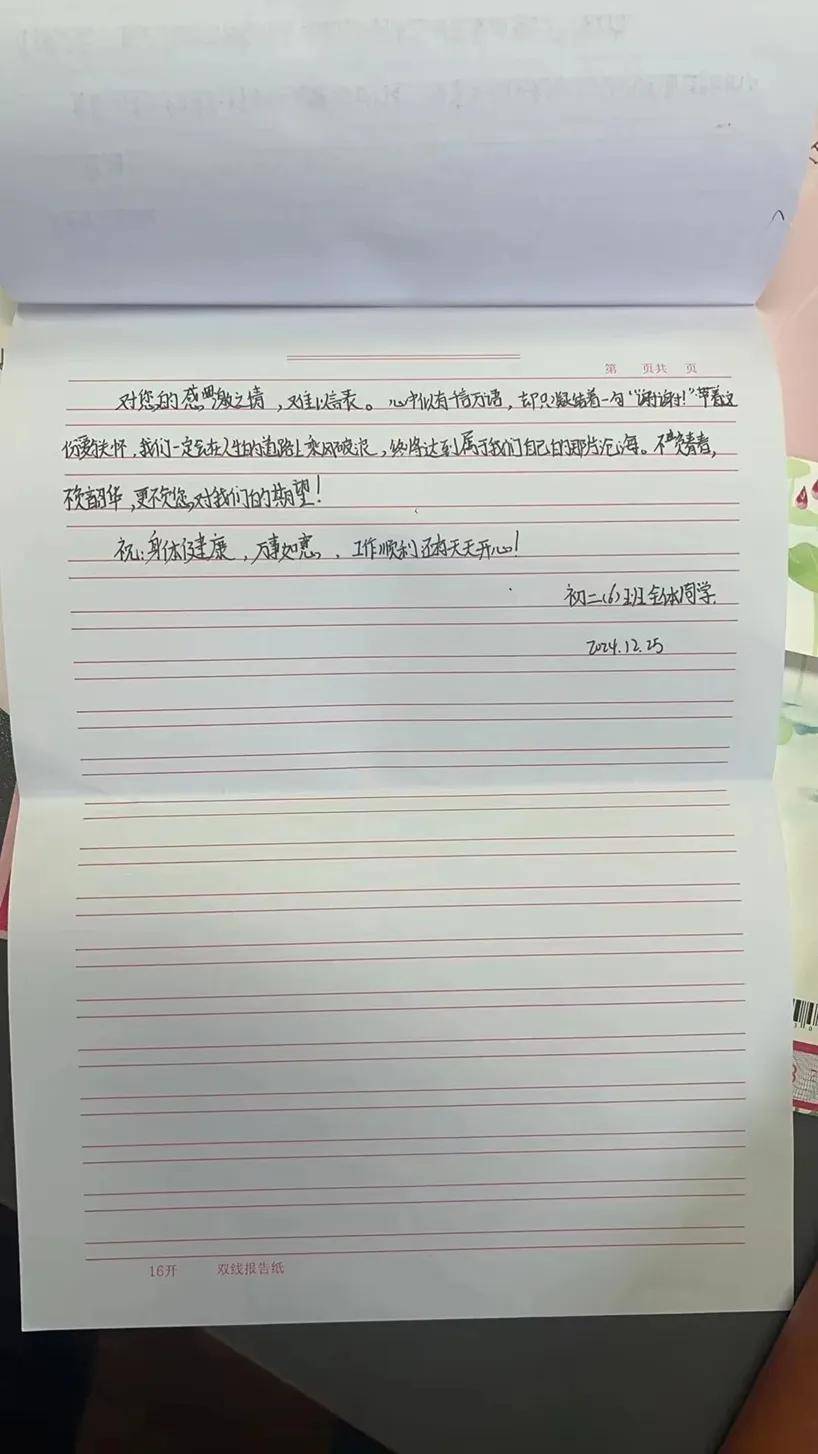 第 页共 页
对您的感恩激之情，难以言表。心中似有千言万语，却只凝结着一句“谢谢！”带着这
份爱与关怀，我们一定会在人生的道路上乘风破浪，终将达到属于我们自己的那片沧海。不负青春，
不负韶华，更不负您对我们的期望！
祝：身体健康，万事如意、工作顺利还有天天开心！
初二（6）班全体同学
2024.12.25
16开 双线报告纸